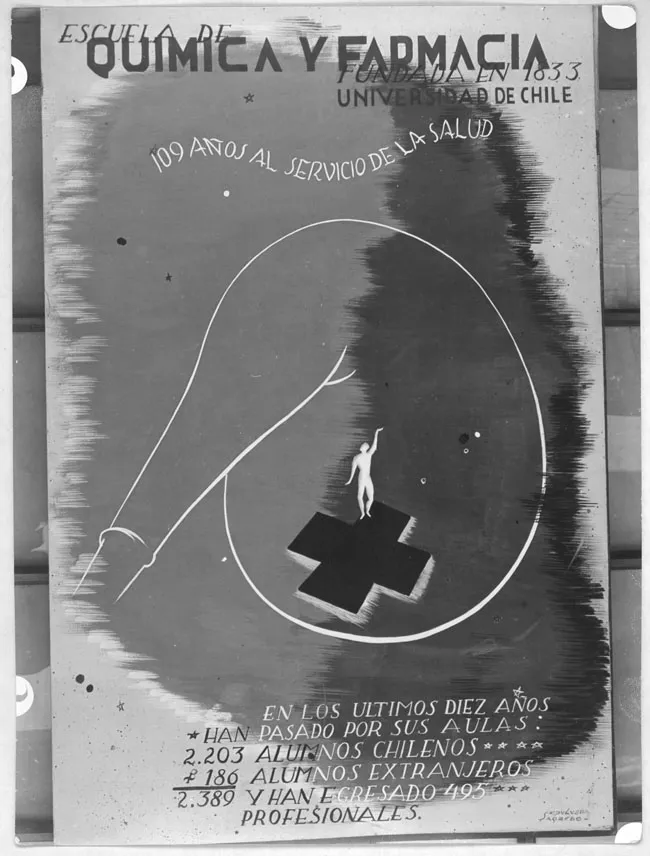 ESCUELA DE
QUIMICA Y FARMACIA
FUNDADA EN 1833
UNIVERSIDAD DE CHILE
109 AÑOS AL SERVICIO DE LA SALUD
EN LOS ULTIMOS DIEZ AÑOS
HAN PASADO POR SUS AULAS:
2.203 ALUMNOS CHILENOS
186 ALUMNOS EXTRANJEROS
2.389 Y HAN EGRESADO 495
PROFESIONALES.